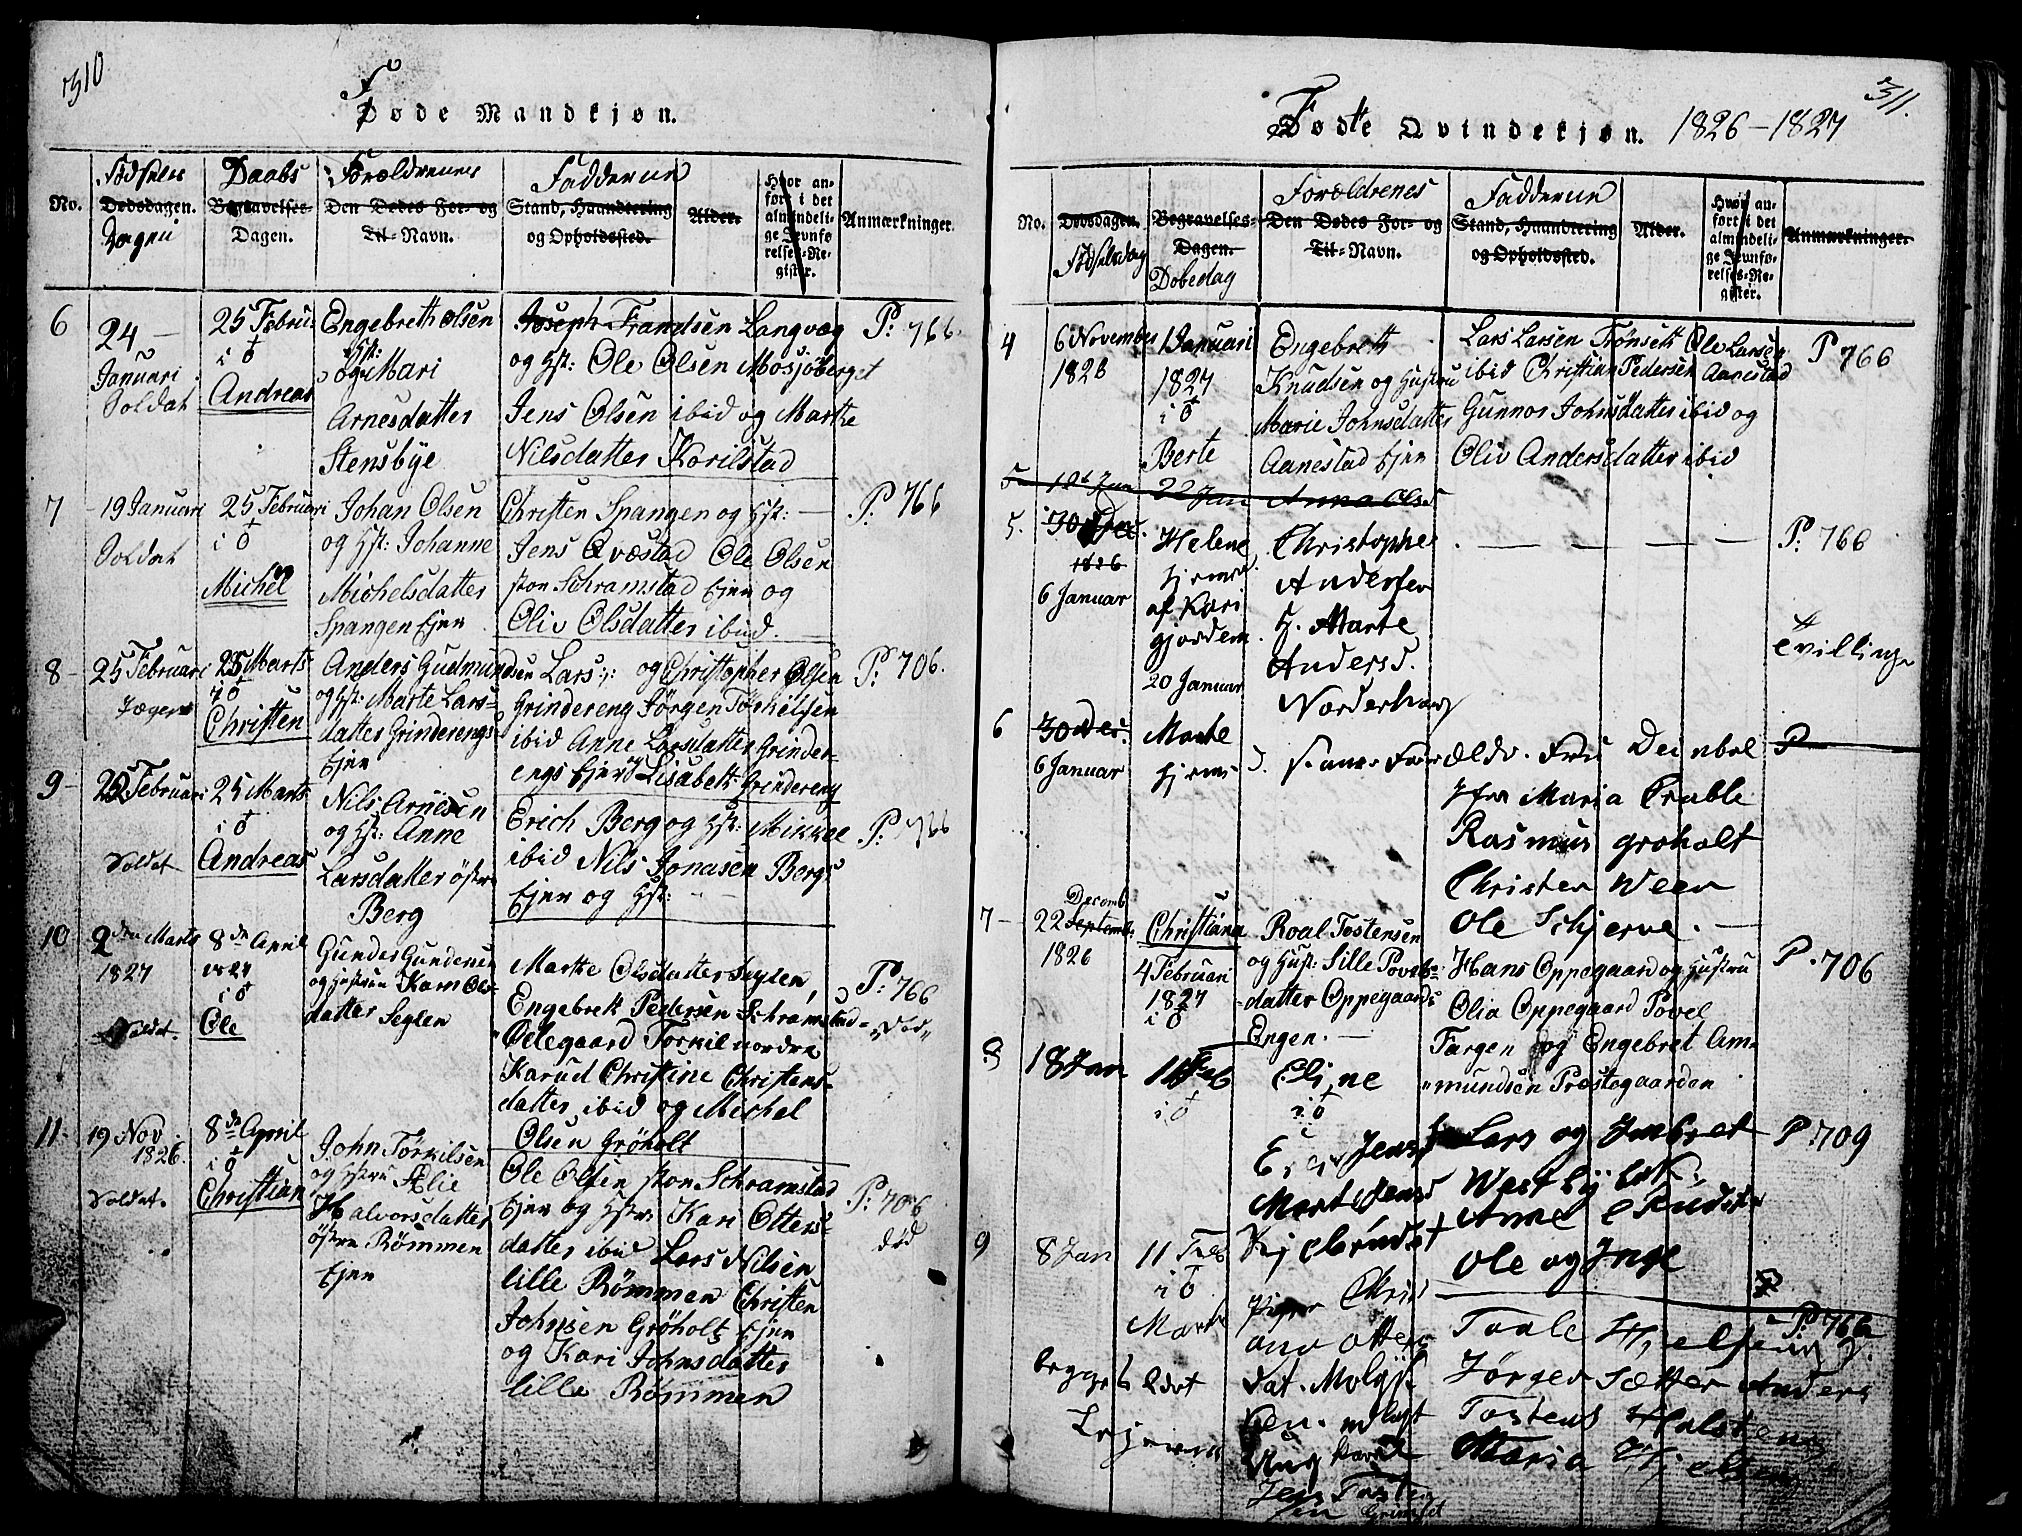 310
Føde Mandkjøn.
No.
Fødseles
Dødsdagen.
Dagen
Daabs
Begravelses-
Dagen.
Forældrenes
Den Dødes For- og
Til-Navn.
Fadderne
Stand, Haandtering
og Opholdssted.
Alder.
Hvor an-
ført i det
almindeli-
ge Jevnfø-
relses-Re-
gister.
Anmærkninger.
6
24 –
Januari
Soldat
25 Febru:
i ō
Andreas
Engebreth Olsen
og Hst: Mari
Arnesdatter
Stensbye
Joseph Frandsen Langvæg
og Hst: Ole Olsen Mosjøberget
Jens Olsen ibid og Marthe
Nilsdatter Korilstad
P: 766.
7
19 Januari
Soldat
25 Februari
i ō
Michel
Johan Olsen
og Hst: Johanne
Michelsdatter
Spangen Ejer
Christen Spangen og Hst: –
Jens Qvæstad Ole Olsen
Schramstad Ejer og
Oliv Olsdatter ibid.
P: 766
8
25 Februari
Jæger
25 Marts
i ō
Christen
Anders Gudmundsen
og Hst: Marte Lars-
datter Grinderengs
Ejer
Lars og Christopher Olsen
Grindereng Jørgen Tørkilsen
ibid Anne Larsdatter Grinder-
engs Ejer Lisabeth Grindereng
P: 706.
9
25 Februari
Soldat
25 Marts
i ō
Andreas
Nils Arnesen
og Hst: Anne
Larsdatter østre
Berg
Erich Berg og Hst: Mikkel
ibid Nils Jonasen Bergs
Ejer og Hst:
P: 766
10
2den Marts
1827
Soldat.
8de April
1827
i ō
Ole
Gunder Gundersen
og Hustru Karn Ols-
datter Seglen
Marthe Olsdatter Seglen,
Engebrek Pedersen Schramstad-
Ødegaard Torkil nordre
Karud Christine Christens-
datter ibid og Michel
Olsen Grøholt
P: 766
11
19 Nov
1826.
Soldat.
8de April
i ō
Christian
John Tørkilsen
og Hstru Ælie
Halvorsdatter
østre Rømmen
Ejer
Ole Olsen Schramstad
Ejer og Hstr: Kari Otters-
datter ibid Lars Nilsen
lille Rømmen Christen
Johnsen Grøholt Ejer
og Kari Johnsdatter
lille Rømmen
P: 706
død
311.
Fødte Qvindekjøn. 1826–1827
No.
Dødsdagen.
Fødselsdag
Begravelses-
Dagen.
Dobedag
Foroldrenes
Den Dødes For- og
Til-Navn.
Fadderne
Stand, Haandtering
og Opholdssted.
Alder.
Hvor an-
ført i det
almindeli-
ge Jevnfø-
relses-Re-
gister.
Anmærkninger.
4
6 November
1826
1 Januari
1827
i ō
Berte
Engebrett
Knudsen og Hustru
Marie Johnsdatter
Aanestad Ejer
Lars Larsen Trønsett Ole Larsen
ibid Christian Pedersen Aanestad
Gunnor Johnsdatter ibid og
Oliv Andersdatter ibid
P 766
5 18 Jan 22 Jan Anna Ols.
5.
30 Dec.
1826
6 Januar
Helene
hjeme
af Kari
gjordem.
20 Januar
Christopher
Andersen
H. Marte
Andersd.
Norderhaug
P. 766
tvilling
6
30 Dec.
6 Januar
Marte
hjeme
Fru
Jfr Maria
Rasmus groholt
Christen Ween
Ole Schjerve.
P
7
Decemb
22 Septemb.
1826
Christiana
4 Februari
1827
i ō
Roal Tostensen
og Hust: Sille Povels-
datter Oppegaards
Engen.
Hans Oppegaard og Hustru
Olia Oppegaard Povel
Fargen og Engebret Am-
mundsen Præstegaarden
P. 706
8
18 Jan
11 Feb
i ō
Eline
i ō
Jens
Mart Jens
Lars og Imbret
Westby
Anne
Ole og Inge
P 709
9
8 Jan
11 Feb
i ō
Marte
Taale Hjelseng
Jørgen Sætter Anders
Tosten Halsteng
Maria Hjelseng
P: 766